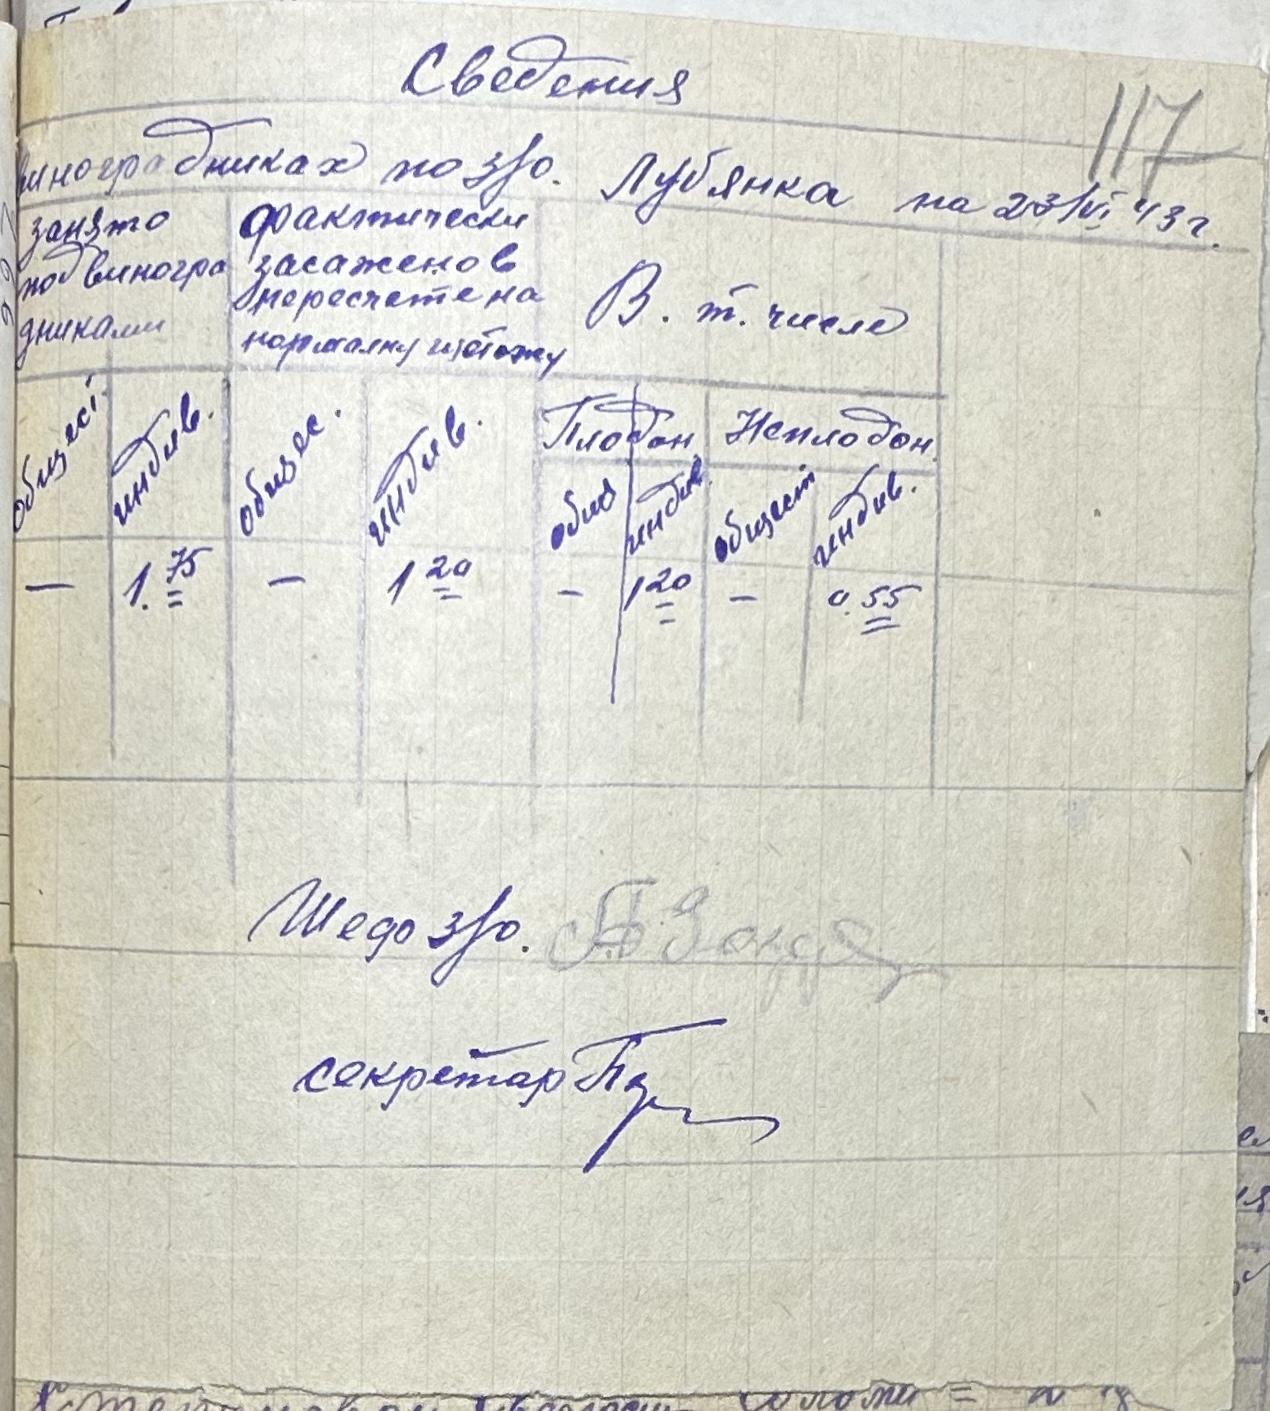 Сведения
117
виноградниках по з/о. Лубянка на 23/VI 43 г.
занято
под виногра
дниками
фактически
засаженов
пересчете на
нормалну
В. т. числе
общест.
индив.
общес.
индив.
Плодон
Неплодон.
общ
индив.
общест
индив.
— 1.75 — 1 20 — 1 20 — 0.55
з/о.
секретар